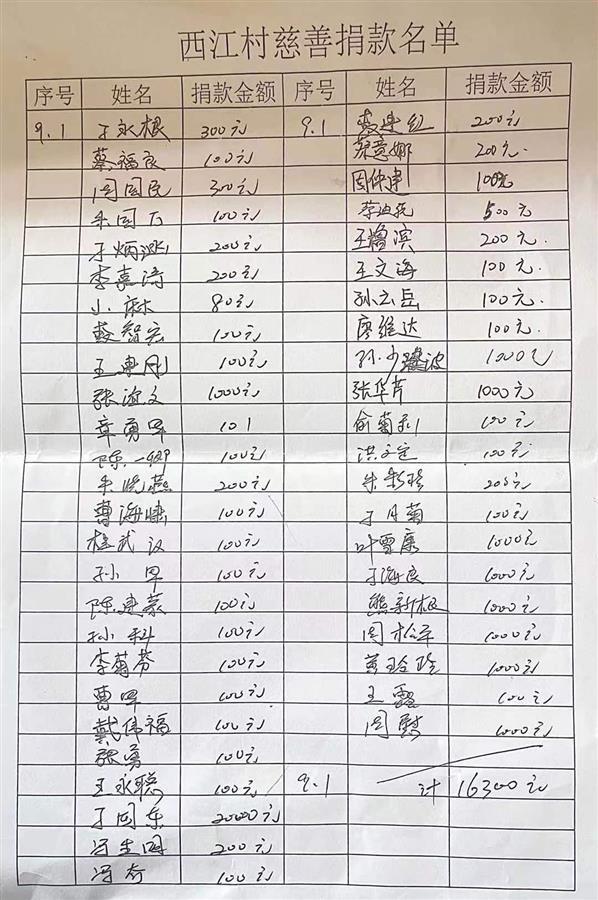 西江村慈善捐款名单
序号 姓名 捐款金额 序号 姓名 捐款金额
9.1 于永根 300元 9.1 200元
蔡福良 100元 蔡意娜 200元.
周国民 300元 周仲建 100元
朱国方 100元 500元
于炳 200元 王鲁滨 200元.
李嘉 200元 王文海 100元.
小 80元 孙云岳 100元.
智宏 100元 廖维达 100元.
王 刚 100元 孙 波 1000元
张 文 1000元 张华芹 1000元
章勇军 101 俞菊 100元
陈 100元 洪文 100元
朱晓燕 200元 朱 200元
曹海 100元 于月菊 100元
武汉 100元 叶雪康 1000元
孙军 100元 于海良 1000元
陈建 100元 熊新根 1000元
孙科 100元 周松 1000元
李菊芬 100元 黄玲 1000元
曹军 100元 王 100元
戴伟福 100元 周 1000元
张勇 100元
王永聪 100元 9.1 计 16300元
于国东 2000元
冯生 200元
冯奇 100元